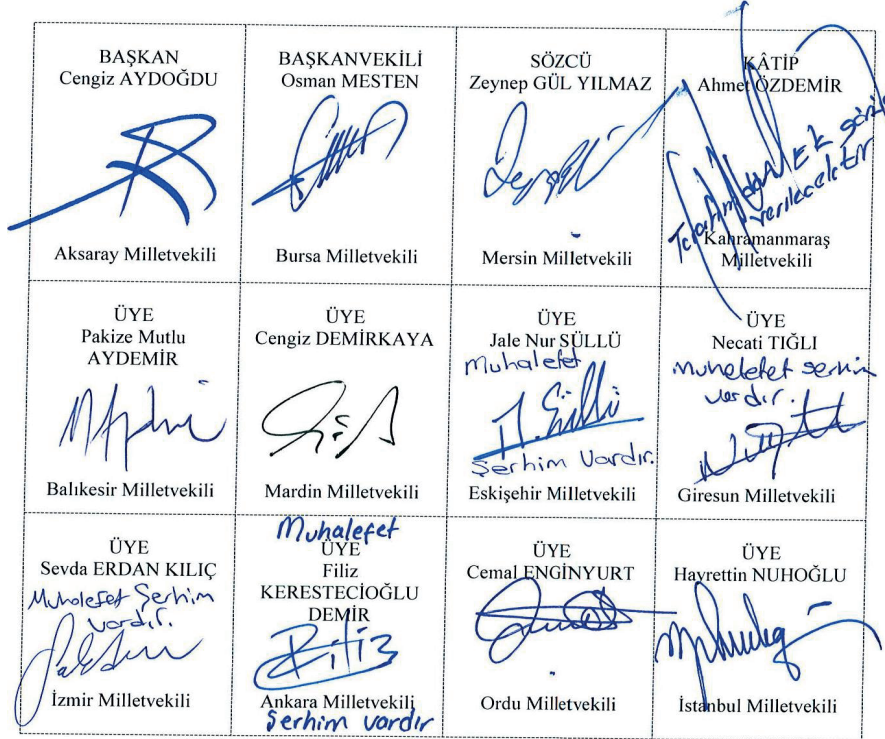 BAŞKAN
Cengiz AYDOĞDU
Aksaray Milletvekili
BAŞKANVEKİLİ
Osman MESTEN
Bursa Milletvekili
SÖZCÜ
Zeynep GÜL YILMAZ
Mersin Milletvekili
KÂTİP
Ahmet ÖZDEMİR
Tarafımdan EK görüş
verilecektir
Kahramanmaraş
Milletvekili
ÜYE
Pakize Mutlu
AYDEMİR
Balıkesir Milletvekili
ÜYE
Cengiz DEMİRKAYA
Mardin Milletvekili
ÜYE
Jale Nur SÜLLÜ
Muhalefet
J. Süllü
Şerhim Vardır.
Eskişehir Milletvekili
ÜYE
Necati TIĞLI
muhalefet şerhim
vardır.
Giresun Milletvekili
ÜYE
Sevda ERDAN KILIÇ
Muhalefet Şerhim
vardır.
İzmir Milletvekili
Muhalefet
ÜYE
Filiz
KERESTECİOĞLU
DEMİR
Filiz
Ankara Milletvekili
Şerhim vardır
ÜYE
Cemal ENGİNYURT
Ordu Milletvekili
ÜYE
Hayrettin NUHOĞLU
İstanbul Milletvekili